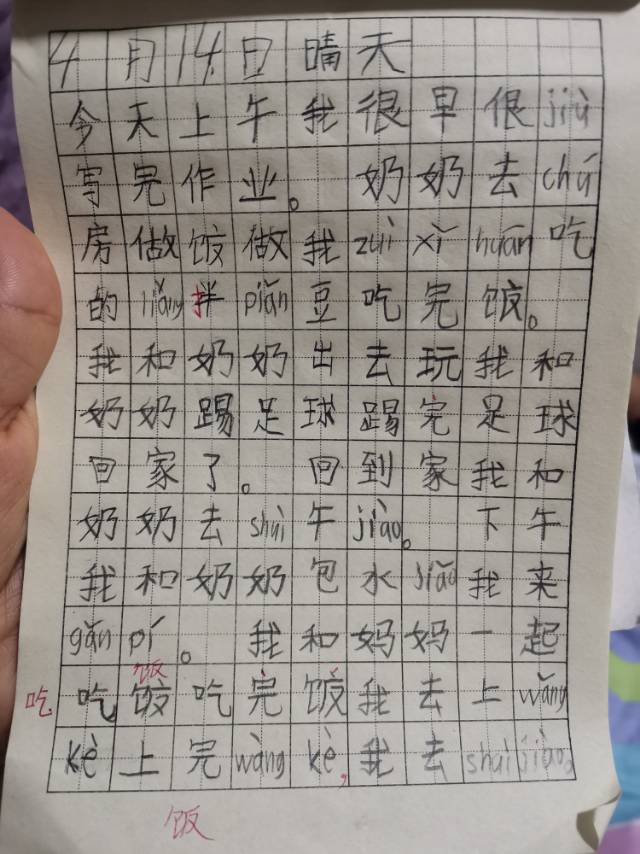 4月14日晴天
今天上午我很早很jiù
写完作业。奶奶去chú
房做饭做我zuì xǐ huān吃
的liǎng拌piǎn豆吃完饭。
我和奶奶出去玩我和
奶奶踢足球踢完足球
回家了。回到家我和
奶奶去shuì午jiào。下午
我和奶奶包水jiǎo我来
gǎn pí。我和妈妈一起
吃 吃饭吃完饭我去上wǎng
饭
kè上完wàng kè,我去shuì jiào。
饭